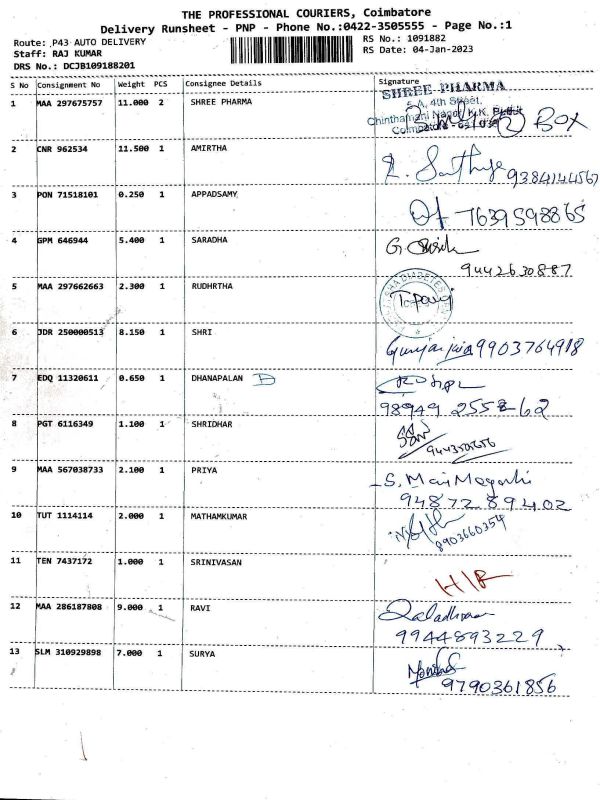 THE PROFESSIONAL COURIERS, Coimbatore
Delivery Runsheet - PNP - Phone No.:0422-3505555 - Page No.:1
Route: P43 AUTO DELIVERY
Staff: RAJ KUMAR
DRS No.: DCJB109188201
RS No.: 1091882
RS Date: 04-Jan-2023
S No Consignment No Weight PCS Consignee Details Signature
1 MAA 297675757 11.000 2 SHREE PHARMA
SHREE PHARMA
5-A, 4th Street,
Chinthamani Nagar, K.K. Pudur
Coimbatore - 641 038
2 BOX
2 CNR 962534 11.500 1 AMIRTHA
9384144567
3 PON 71518101 0.250 1 APPADSAMY
7639598865
4 GPM 646944 5.400 1 SARADHA
G.
9442630887
5 MAA 297662663 2.300 1 RUDHRTHA
DIABETES
6 JDR 250000513 8.150 1 SHRI
9903764918
7 EDQ 11320611 0.650 1 DHANAPALAN D
98949 255262
8 PGT 6116349 1.100 1 SHRIDHAR
9 MAA 567038733 2.100 1 PRIYA
S.
94872 89402
10 TUT 1114114 2.000 1 MATHAMKUMAR
8903660354
11 TEN 7437172 1.000 1 SRINIVASAN
H/R
12 MAA 286187808 9.000 1 RAVI
9944893229
13 SLM 310929898 7.000 1 SURYA
9790361856